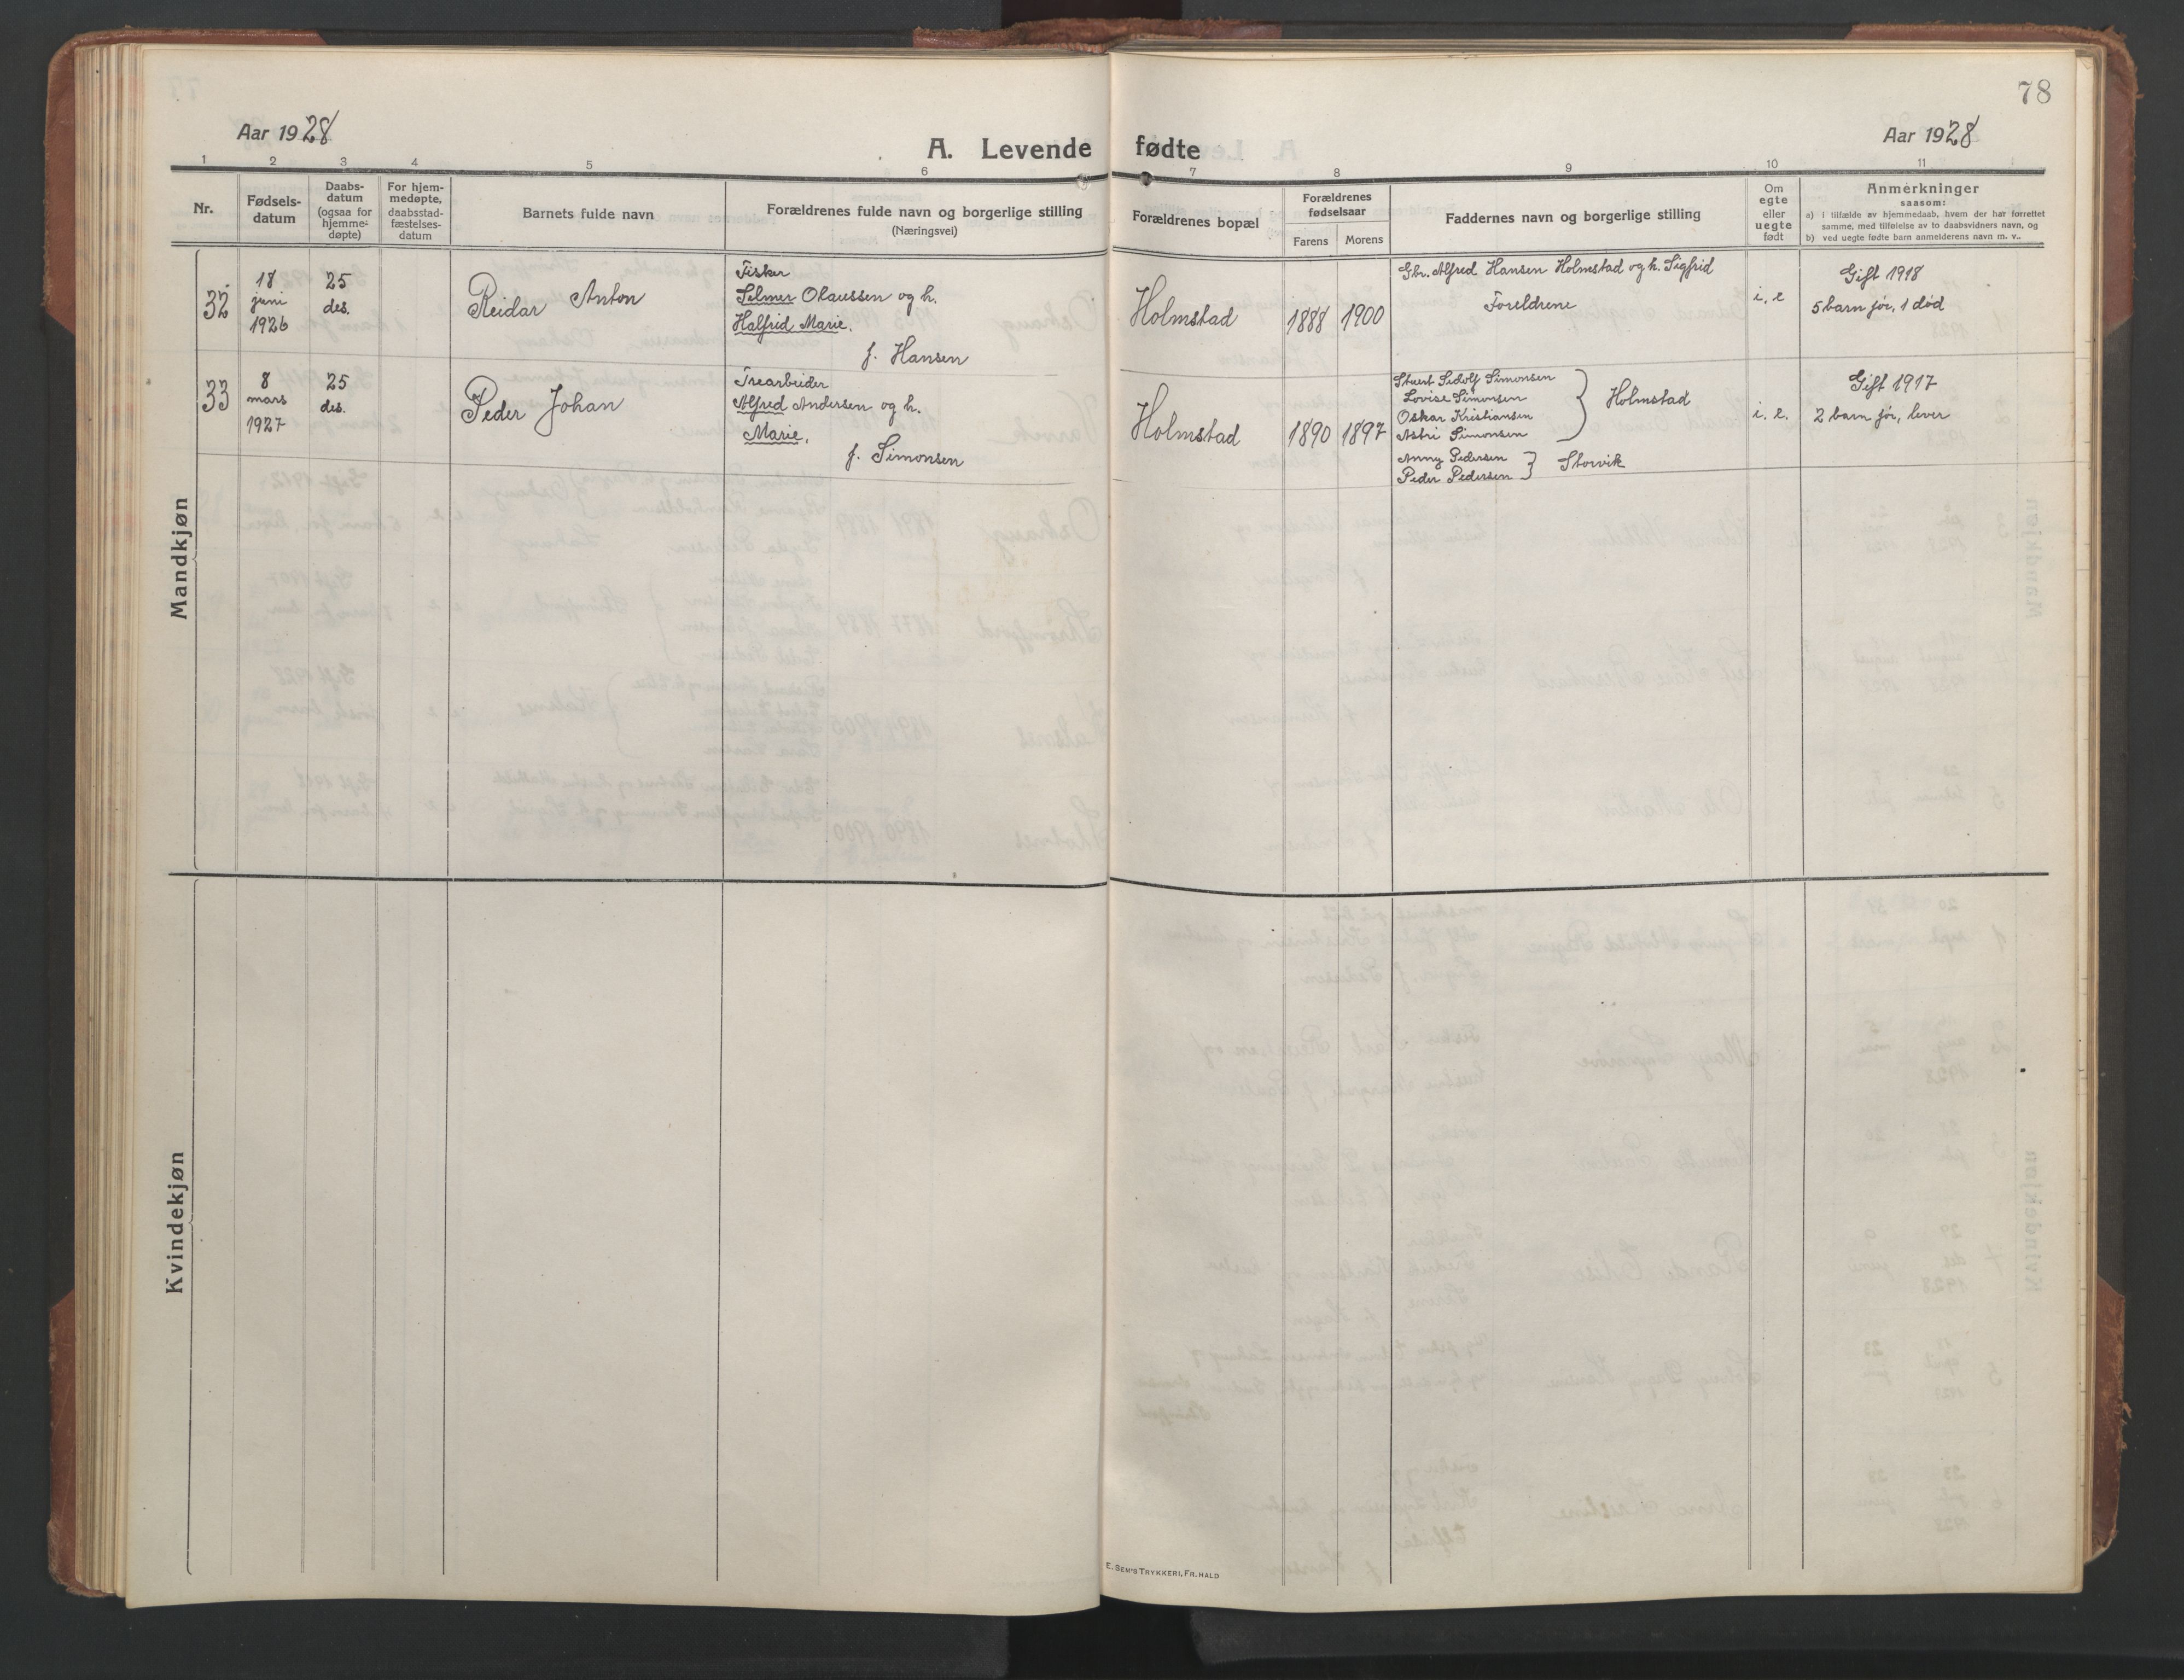 78
Aar 1928
A. Levende fødte
Aar 1928
1 2 3 4 5 6 7 8 9 10 11
Nr.
Fødsels-
datum
Daabs-
datum
(ogsaa for
hjemme-
døpte)
For hjem-
medøpte,
daabsstad-
fæstelses-
datum
Barnets fulde navn
Forældrenes fulde navn og borgerlige stilling
(Næringsvei)
Forældrenes bopæl
Forældrenes
fødselsaar
Farens
Morens
Faddernes navn og borgerlige stilling
Om
egte
eller
uegte
født
Anmerkninger
saasom:
a) I tilfælde av hjemmedaab, hvem der har forrettet
samme, med tilføielse av to daabsvidners navn, og
b) ved uegte fødte barn anmelderens navn m. v..
Mandkjøn
32
18
juni
1926
25
des.
Reidar Anton
Fisker
Selmer Olaussen og h.
Halfrid Marie,
f. Hansen
Holmstad
1888
1900
Gbr. Alfred Hansen Holmstad og h. Sigfrid
Foreldrene
i. e
Gift 1918
5 barn før, 1 død
33
8
mars
1927
25
des.
Peder Johan
Trearbeider
Alfred Andersen og h.
Marie,
f. Simonsen
Holmstad
1890
1897
Sidolf Simonsen
Lovise Simonsen
Oskar Kristiansen
Astri Simonsen
Holmstad
Anny Pedersen
Peder Pedersen
Storvik
i. e.
Gift 1917
2 barn før, lever
Kvindekjøn
E. Sem's Trykkeri, Fr.hald